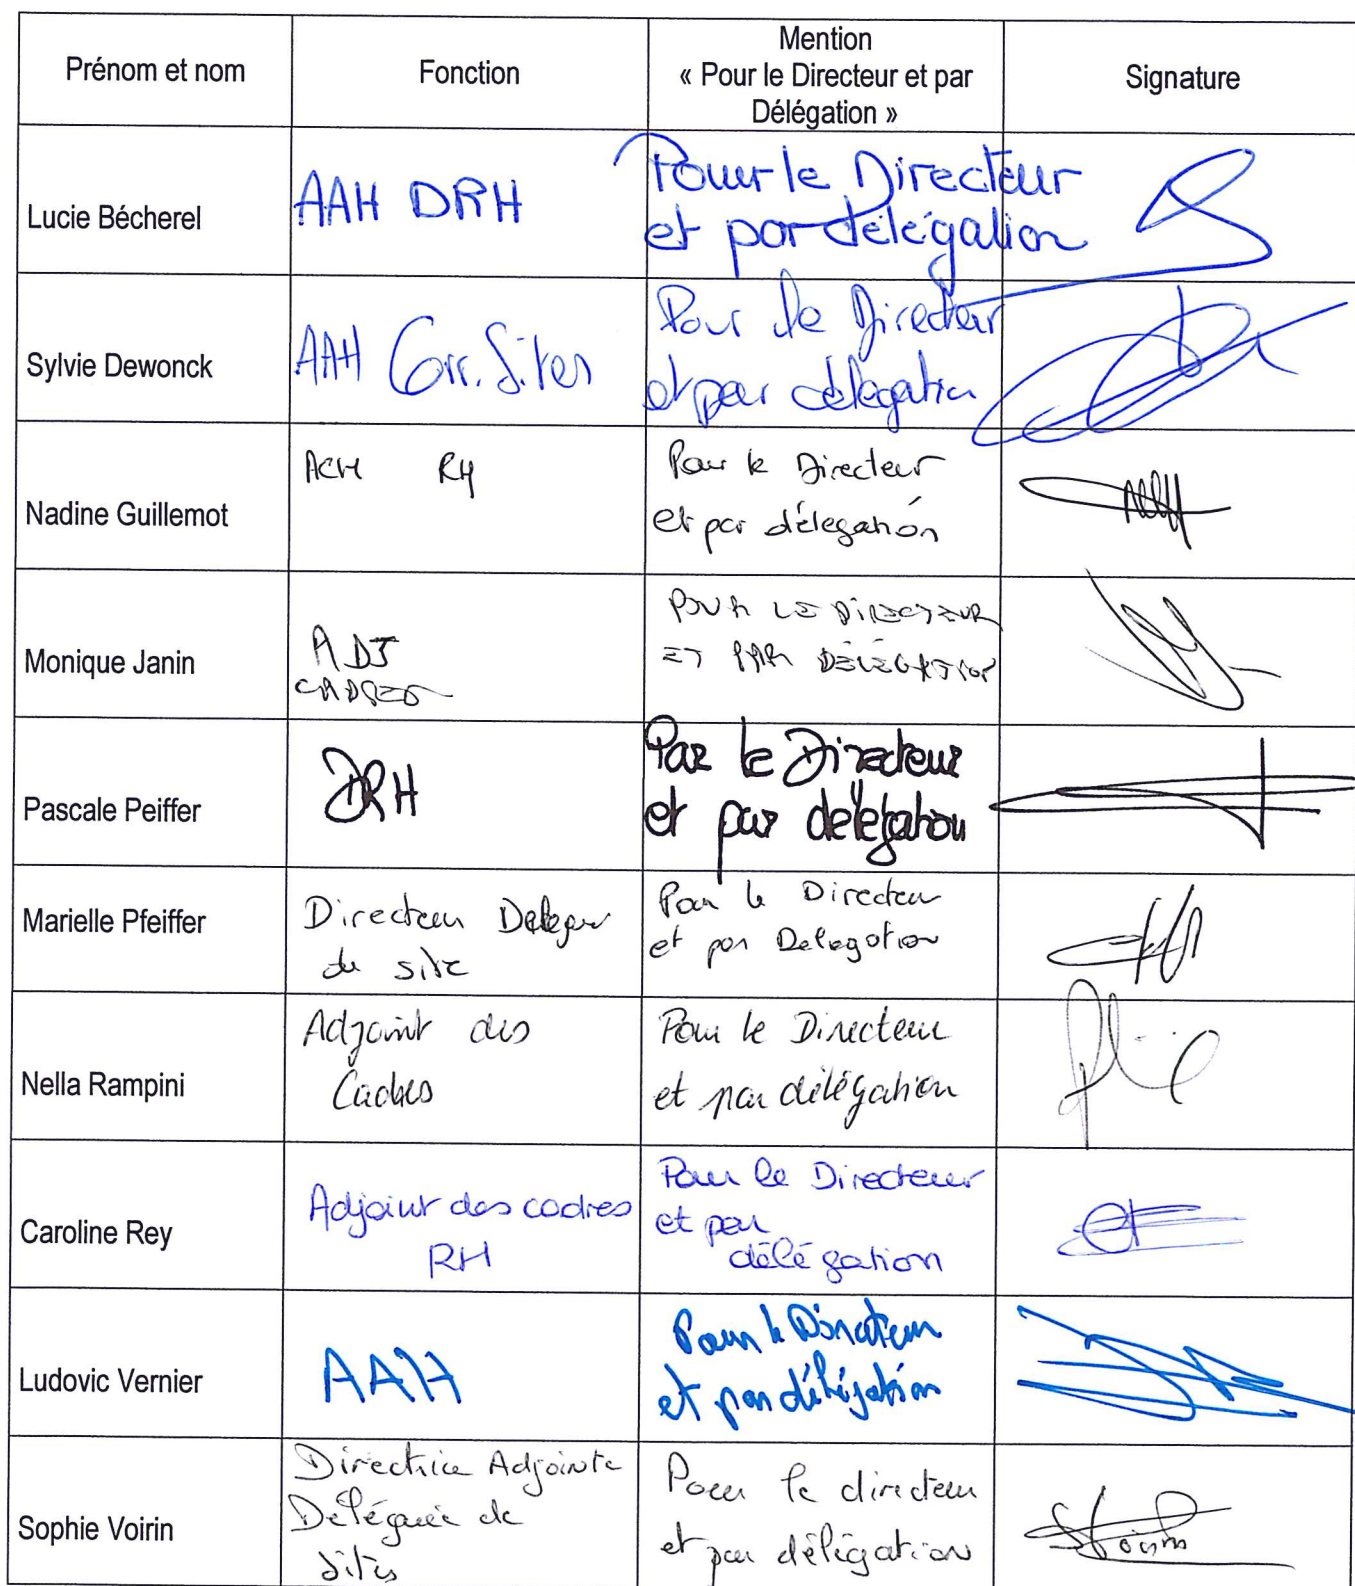 Prénom et nom
Fonction
Mention
« Pour le Directeur et par
Délégation »
Signature
Lucie Bécherel
AAH DRH
Pour le Directeur
et par délégation
Sylvie Dewonck
AAH Corr. Sites
Pour le Directeur
et par délégation
Nadine Guillemot
ACH RH
Pour le Directeur
et par délégation
Monique Janin
ADJ
CADRES
POUR LE DIRECTEUR
ET PAR DÉLÉGATION
Pascale Peiffer
DRH
Par le Directeur
et par délégation
Marielle Pfeiffer
Directeur Deleguer
de site
Pour le Directeur
et par Delegation
Nella Rampini
Adjoint des
Cadres
Pour le Directeur
et par délégation
Caroline Rey
Adjoint des cadres
RH
Pour le Directeur
et par
délégation
Ludovic Vernier
AAH
Pour le Directeur
et par délégation
Sophie Voirin
Directrice Adjointe
Déléguée de
Sites
Pour le directeur
et par délégation
Voirin